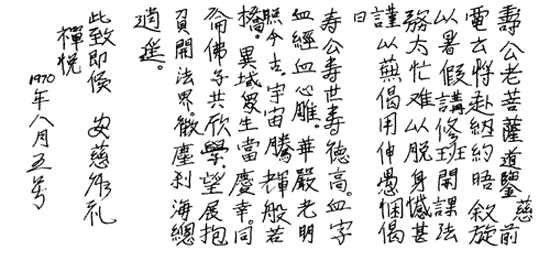 壽公老菩薩道鑒 慈前
電云將赴紐約晤敘旋
以暑假講修班開課法
務太忙难以脱身憾甚
謹以蕪偈用伸愚悃偈
曰
寿公寿世寿德高。血字
血經血心雕。華嚴老明
照今古。宇宙騰輝般若
橋。異域眾生當慶幸。同
侖佛子共欣學。望展抱
負開法界。微塵刹海總
逍遥。
此致即候 安慈 礼
禪悦
1970年八月五号